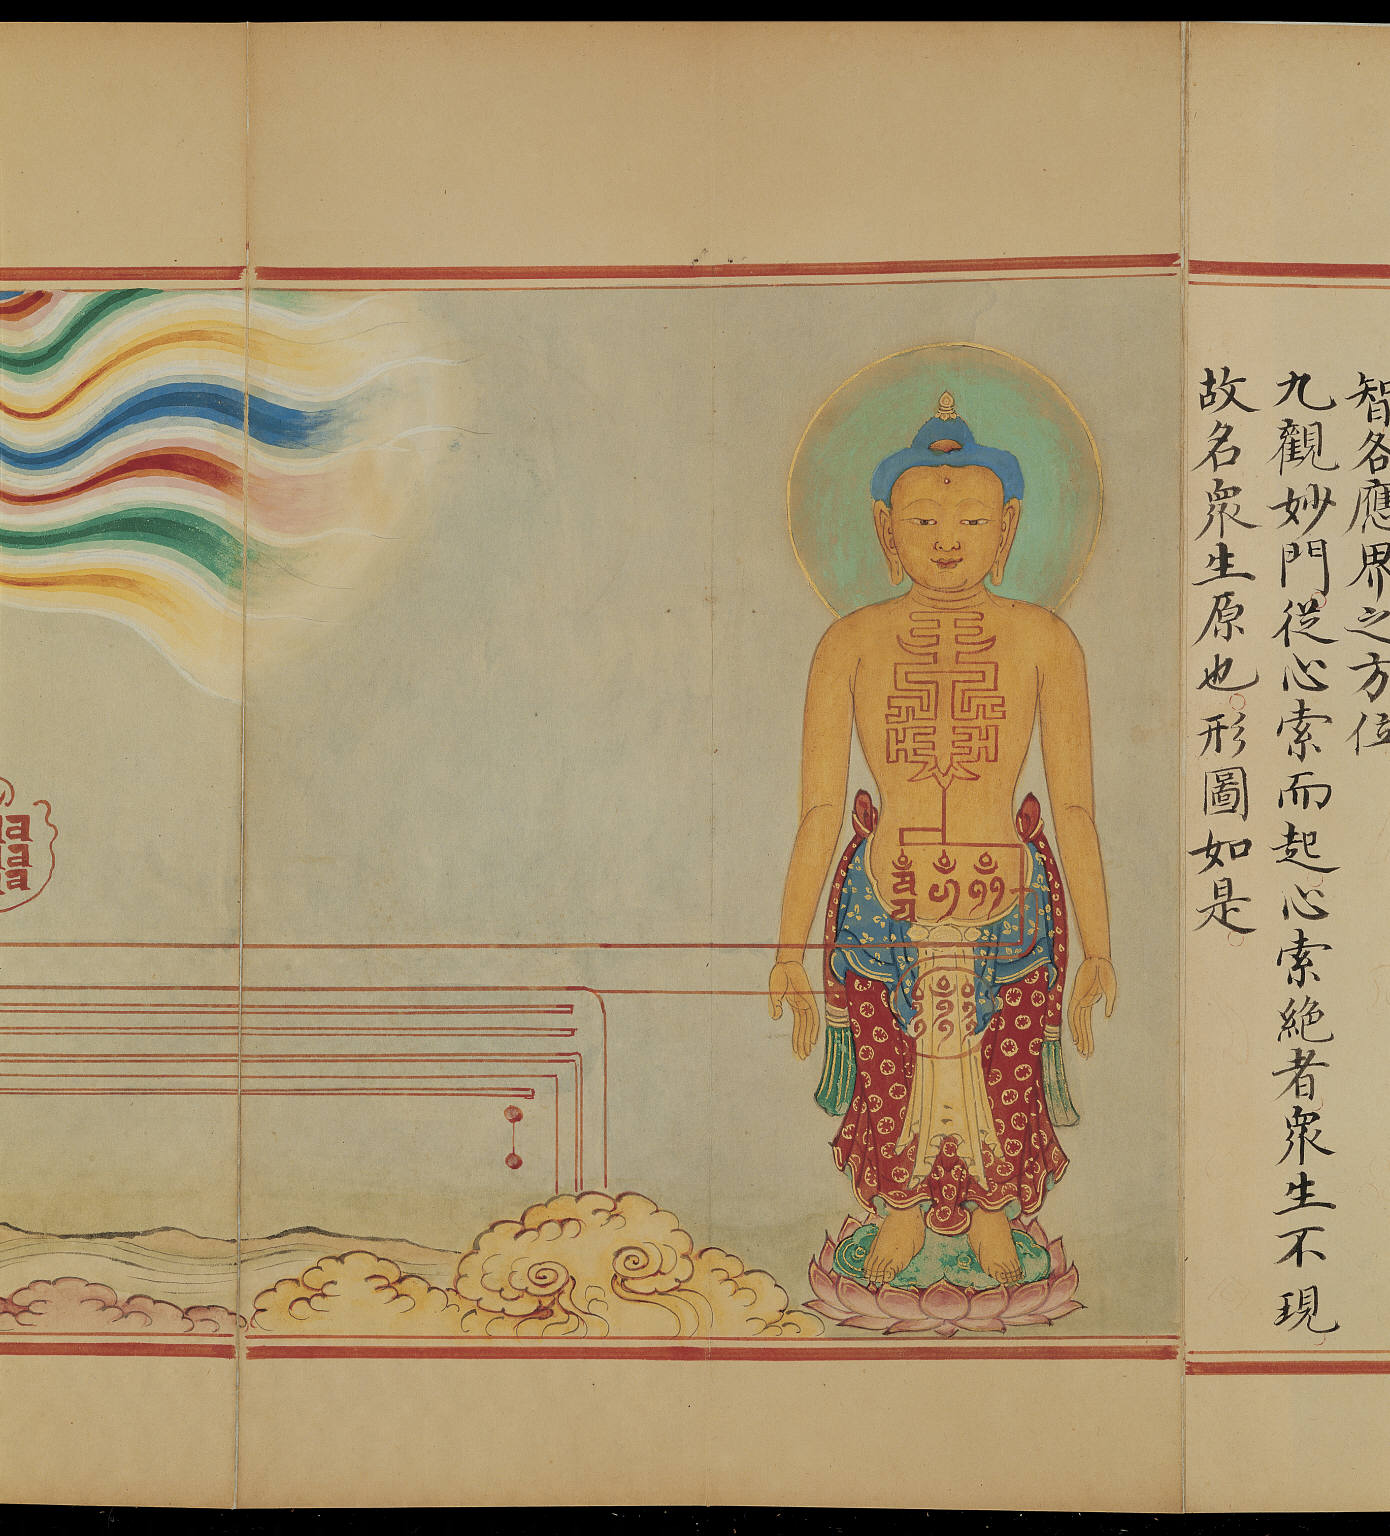 智各應界之方位
九觀妙門從心索而起心索絶者衆生不現
故名衆生原也形圖如是